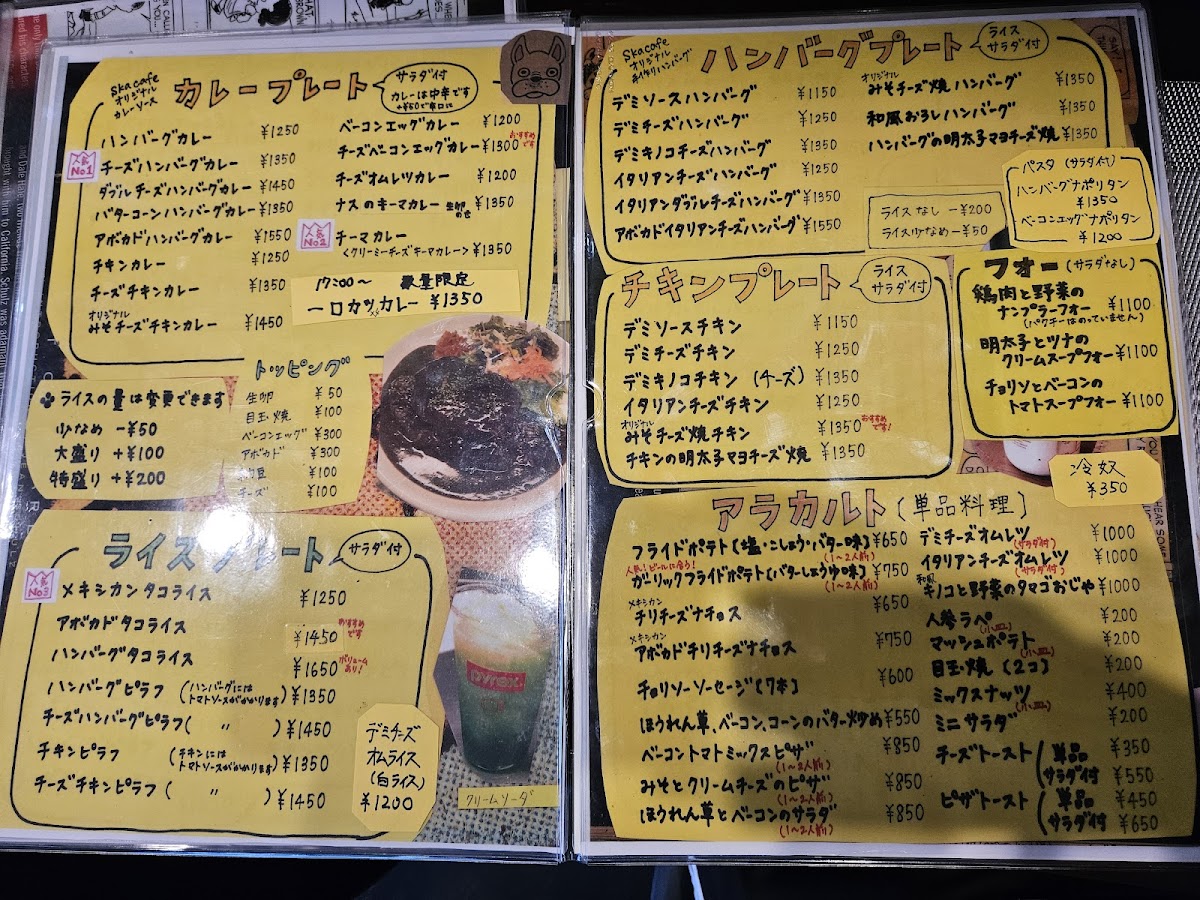 Ska cafe
オリジナル
カレーソース
カレープレート
サラダ付
カレーは中辛です
+¥50で辛口に
ハンバーグカレー ¥1250
人気No1
チーズハンバーグカレー ¥1350
ダブルチーズハンバーグカレー ¥1450
バターコーンハンバーグカレー ¥1350
アボカドハンバーグカレー ¥1550
チキンカレー ¥1250
チーズチキンカレー ¥1350
オリジナル
みそチーズチキンカレー ¥1450
ベーコンエッグカレー ¥1200
チーズベーコンエッグカレー ¥1300 おすすめです
チーズオムレツカレー ¥1200
ナスのキーマカレー 生卵のせ ¥1350
人気No2
チーマカレー
〈クリーミーチーズキーマカレー〉 ¥1350
17:00〜 数量限定
一口カツカレー ¥1350
♣ ライスの量は変更できます
少なめ -¥50
大盛り +¥100
特盛り +¥200
トッピング
生卵 ¥50
目玉焼 ¥100
ベーコンエッグ ¥300
アボカド ¥300
納豆 ¥100
チーズ ¥100
ライスプレート
サラダ付
人気No3
メキシカンタコライス ¥1250
アボカドタコライス ¥1450 おすすめです
ハンバーグタコライス ¥1650 ボリュームあり!
ハンバーグピラフ (ハンバーグにはトマトソースがかかります) ¥1350
チーズハンバーグピラフ ( 〃 ) ¥1450
チキンピラフ (チキンにはトマトソースがかかります) ¥1350
チーズチキンピラフ ( 〃 ) ¥1450
デミチーズ
オムライス
(白ライス)
¥1200
PYREX
クリームソーダ
Ska cafe
オリジナル
手作りハンバーグ
ハンバーグプレート
ライス
サラダ付
デミソースハンバーグ ¥1150
デミチーズハンバーグ ¥1250
デミキノコチーズハンバーグ ¥1350
イタリアンチーズハンバーグ ¥1250
イタリアンダブルチーズハンバーグ ¥1350
アボカドイタリアンチーズハンバーグ ¥1550
オリジナル
みそチーズ焼ハンバーグ ¥1350
和風おろしハンバーグ ¥1350
ハンバーグの明太子マヨチーズ焼 ¥1350
ライスなし -¥200
ライス少なめ -¥50
パスタ (サラダ付)
ハンバーグナポリタン
¥1350
ベーコンエッグナポリタン
¥1200
チキンプレート
ライス
サラダ付
デミソースチキン ¥1150
デミチーズチキン ¥1250
デミキノコチキン (チーズ) ¥1350
イタリアンチーズチキン ¥1250
オリジナル
みそチーズ焼チキン ¥1350 おすすめです!
チキンの明太子マヨチーズ焼 ¥1350
フォー (サラダなし)
鶏肉と野菜の
ナンプラーフォー ¥1100
(パクチーはのっていません)
明太子とツナの
クリームスープフォー ¥1100
チョリソとベーコンの
トマトスープフォー ¥1100
冷奴
¥350
アラカルト (単品料理)
フライドポテト(塩・こしょう・バター味) ¥650
(1〜2人前)
人気!ビールに合う!
ガーリックフライドポテト(バターしょうゆ味) ¥750
(1〜2人前)
メキシカン
チリチーズナチョス ¥650
メキシカン
アボカドチリチーズナチョス ¥750
チョリソーソーセージ(7本) ¥600
ほうれん草、ベーコン、コーンのバター炒め ¥550
ベーコントマトミックスピザ ¥850
(1〜2人前)
みそとクリームチーズのピザ ¥850
(1〜2人前)
ほうれん草とベーコンのサラダ ¥850
(1〜2人前)
デミチーズオムレツ ¥1000
(サラダ付)
イタリアンチーズオムレツ ¥1000
(サラダ付)
和風
キノコと野菜のタマゴおじや ¥1000
人参ラペ ¥200
(小皿)
マッシュポテト ¥200
(小皿)
目玉焼(2コ) ¥200
ミックスナッツ ¥400
(小皿)
ミニサラダ ¥200
チーズトースト (単品 ¥350
サラダ付 ¥550
ピザトースト (単品 ¥450
サラダ付 ¥650